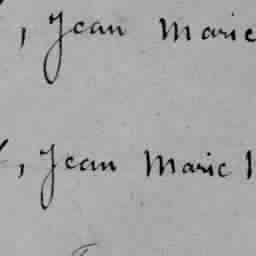 , Jean Marie
, Jean Marie